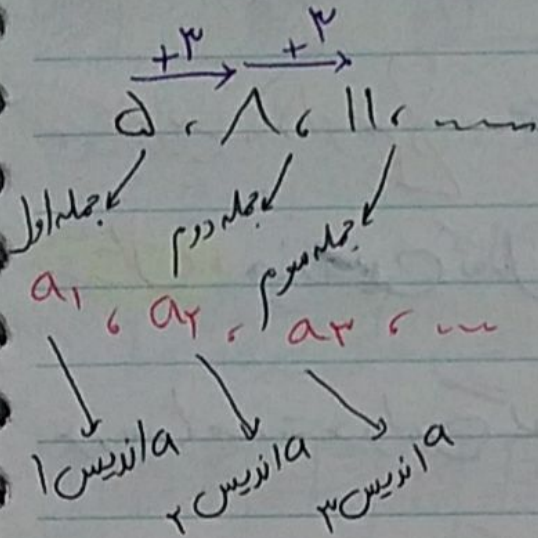 +۳ +۳
۵ ، ۸ ، ۱۱ ، ...
جمله اول جمله دوم جمله سوم
a۱ ، a۲ ، a۳ ، ...
a اندیس ۱ a اندیس ۲ a اندیس ۳